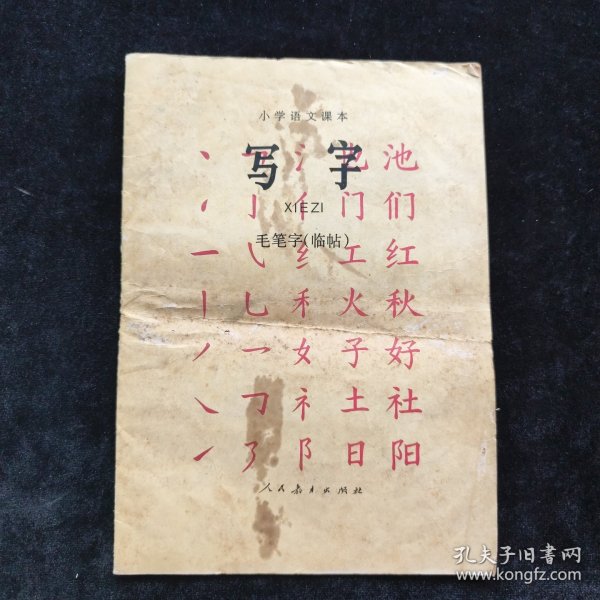 小学语文课本
写字
XIEZI
毛笔字(临帖)
丶 乛 氵 也 池
亻 门 们
一 ㇂ 纟 工 红
丨 乚 禾 火 秋
丿 一 女 子 好
㇏ ㇆ 礻 土 社
㇀ 阝 日 阳
人民教育出版社
孔夫子旧书网
www.kongfz.com